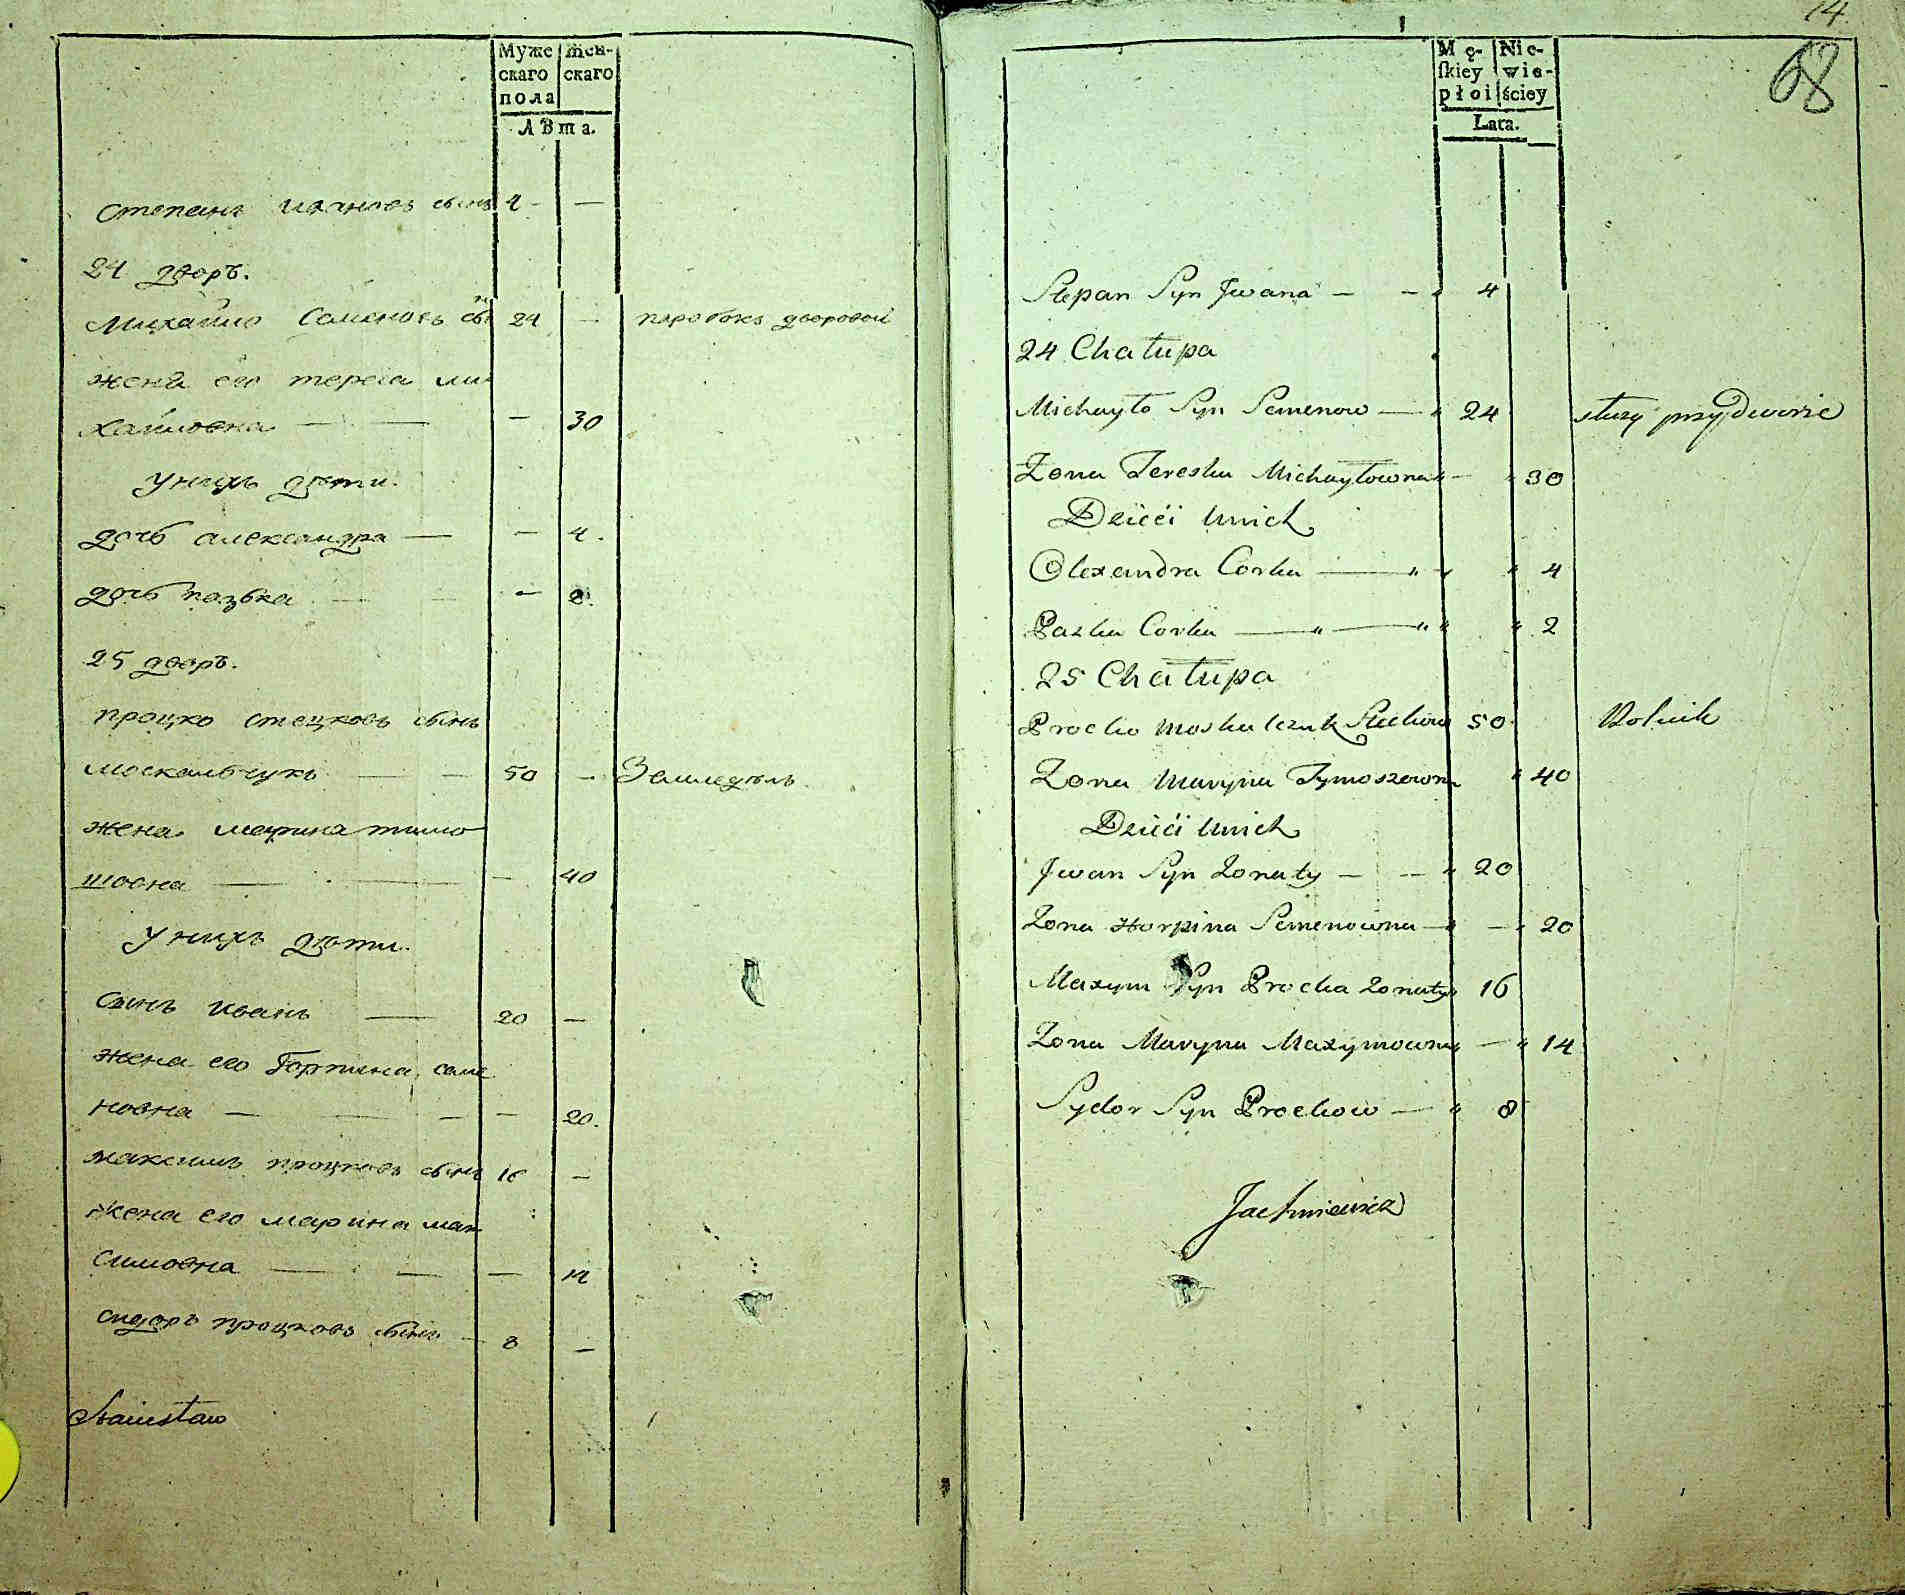 Муже Жен-
скаго скаго
пола
Лѣта.
степанъ ивановъ сынъ 4 - —
24 дворъ.
михайло семеновъ сынъ 24 — паробокъ дворовой
жена его тереса ми-
хайловна — — — 30
у нихъ дѣти.
дочь александра — — 4.
дочь пазька — — — 2.
25 дворъ.
процко стецковъ сынъ
москальчукъ — — 50 — Земледѣль
жена марина тимо
шовна — — — 40
у нихъ дѣти.
сынъ иванъ — 20 —
жена его Горпина семе
новна — — — — 20.
максимъ процковъ сынъ 16 —
жена его марина мак
симовна — — — 14
сидоръ процковъ сынъ — 8 —
Stanisław
14
68
Mę- Nie-
skiey wie-
płoi ściey
Lata.
Stepan Syn Jwana — — " 4
24 Chałupa
Michayło Syn Semenow — " 24 służy przy Dworze
Zona Tereska Michayłowna " — " 30
Dzieci Unich
Olexandra Corka — " " " 4
Pazka Corka — " — " " " 2
25 Chałupa
Procko Moskalczuk Steckow 50 Rolnik
Zona Maryna Tymoszowna " 40
Dzieci Unich
Jwan Syn Zonaty — — " 20
Zona Horpina Semenowna — " — " 20
Maxym Syn Procka Zonaty " 16
Zona Maryna Maxymowna " — " 14
Sydor Syn Prockow — " 8
Jachniewicz